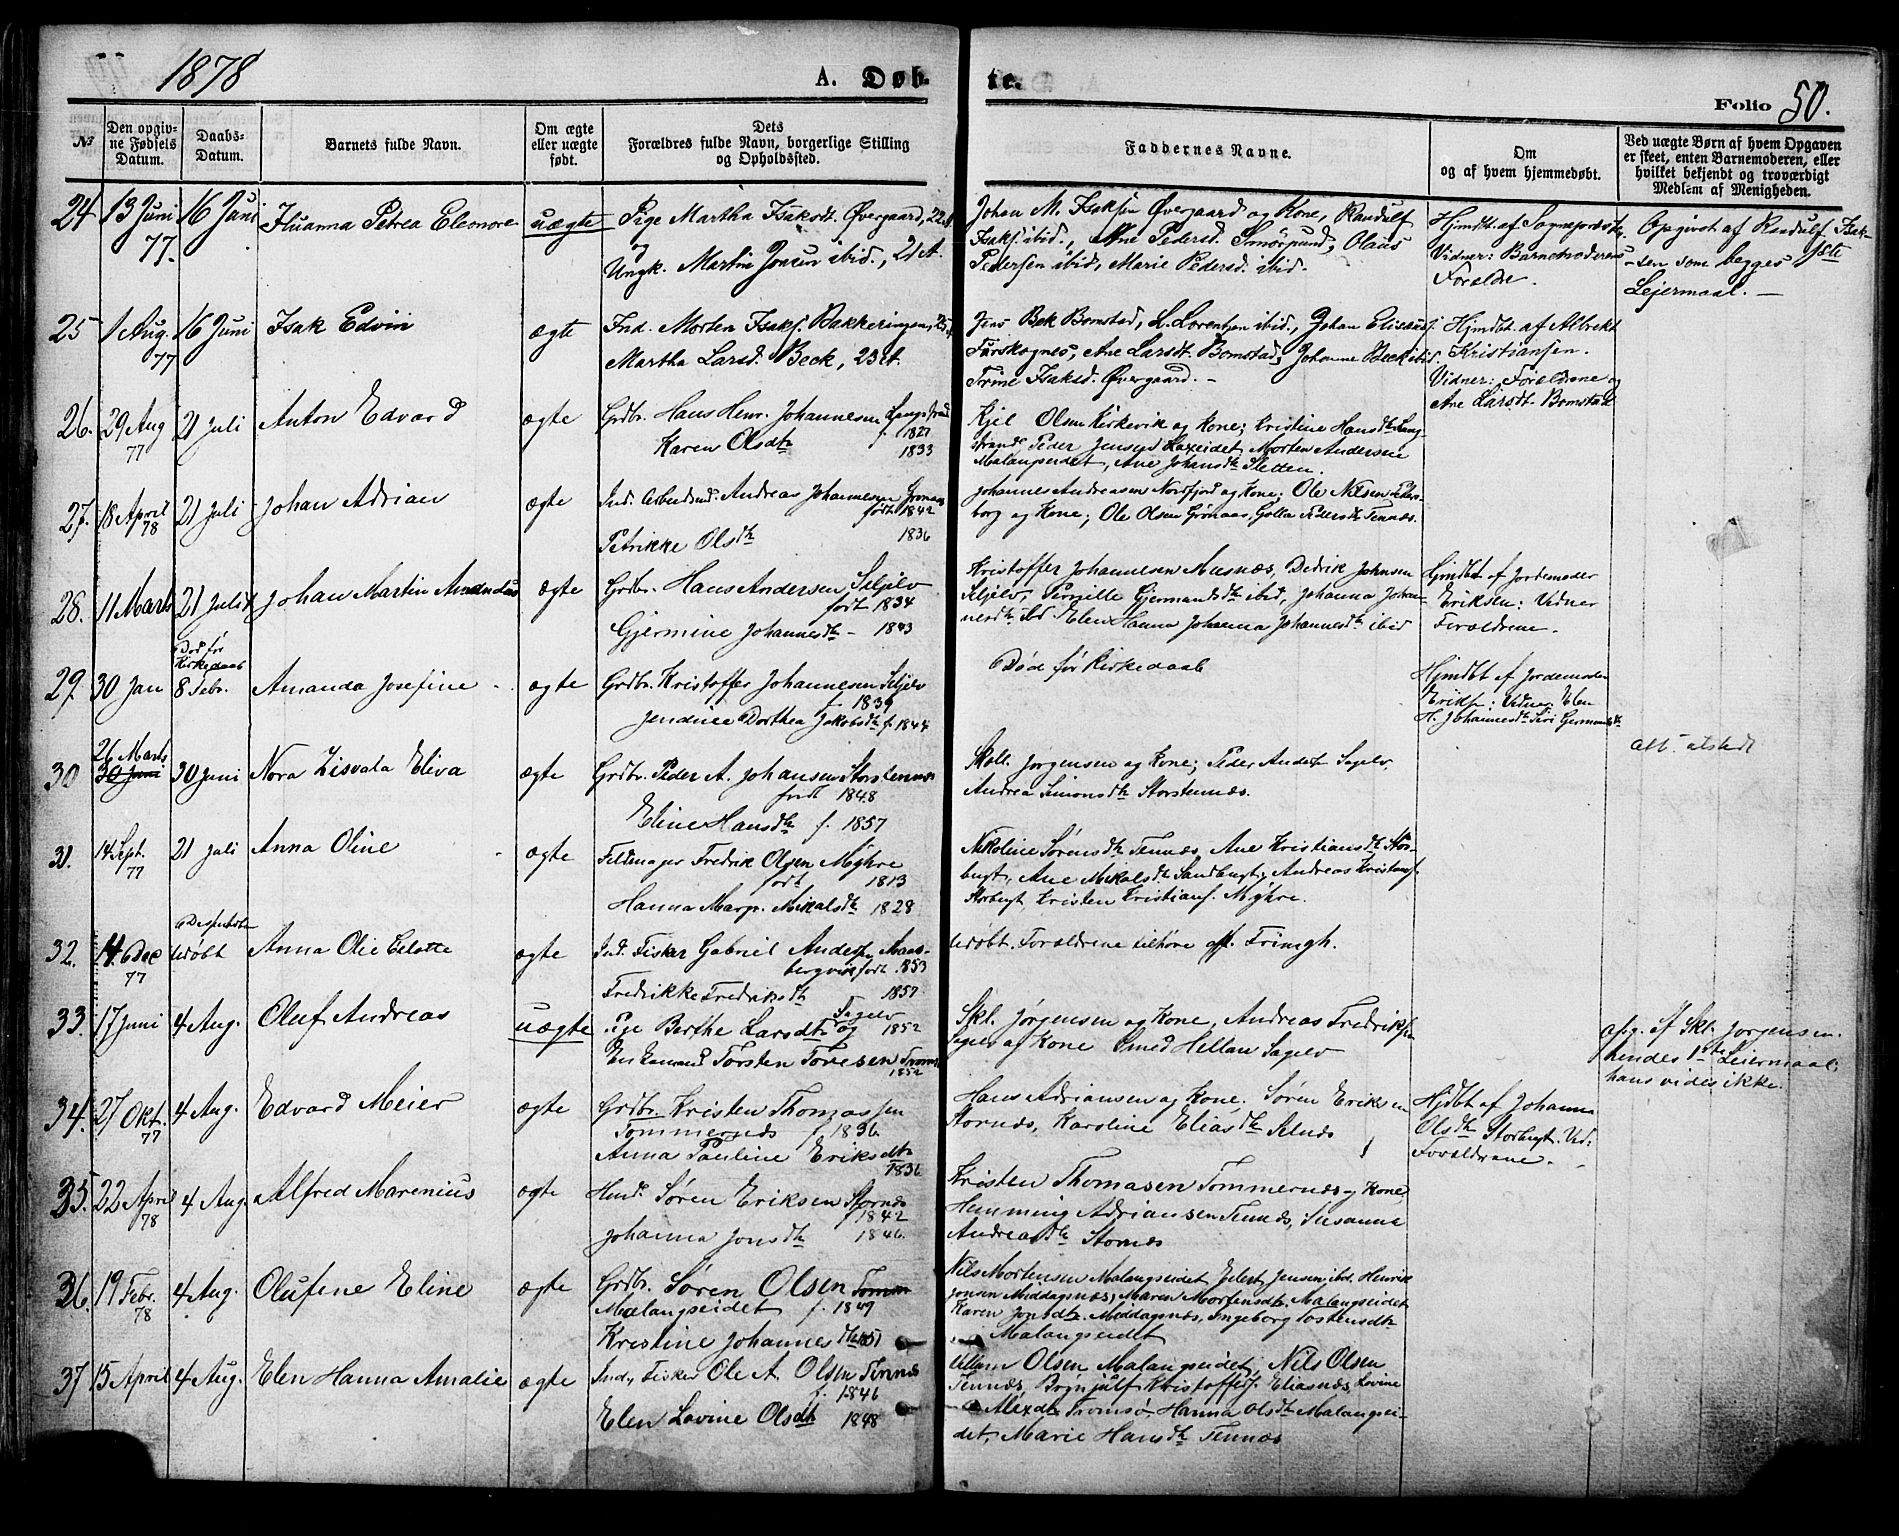 1878
A. Døb-
te.
Folio 50.
№
Den opgiv-
ne Fødsels
Datum.
Daabs-
Datum.
Barnets fulde Navn.
Om ægte
eller uægte
født.
Dets
Forældres fulde Navn, borgerlige Stilling
og Opholdssted.
Faddernes Navne.
Om
og af hvem hjemmedøbt.
Ved uægte Børn af hvem Opgaven
er skeet, enten Barnemoderen, eller
hvilket bekjendt og troværdigt
Medlem af Menigheden.
24 13 Juni 77. 16 Juni Petrea Eleonore uægte
Pige Martha Isaksdt. Øvergaard, 22
Ungk. Martin Jonsen ibid., 21 A.
Johan M. Isaksen Øvergaard og Kone, Randulf
Isaks. ibid., Ane Pedersd. Smörpund, Olaus
Pedersen ibid, Marie Pedersd. ibid.
Hjmdt. af Sognepræsten.
Vidner: Barnemoderens
Forældre.
Opgivet af Randulf Isak-
sen som begges 1ste
Lejermaal.
25 1 Aug. 77 16 Juni Isak Edvin ægte
Ind. Morten Isaks. Bakkeringen, 25
Martha Larsd. Beck, 23 A.
Jens Bek Bomstad, L. Lorentsen ibid., Johan
Ane Larsdt. Bomstad, Johanne Beck ibid.
Trine Isaksd. Øvergaard.
Hjmdbt. af Albrekt
Kristiansen.
Vidner: Forældrene og
Ane Larsdt. Bomstad
26. 29 Aug 77 21 Juli Anton Edvard ægte
Grdbr. Hans Henr. Johannesen Langstrand
f. 1827
Karen Olsdtr 1833
Kjel Olsen Kirkevik og Kone; Kristine Hansdtr Lang-
strand Peder Jensen Laxeidet, Morten Andersen
Malangseidet, Ane Johansdtr Sletten.
27. 18 April 78 21 Juli Johan Adrian ægte
Ind. Arbeidsmd. Andreas Johannesen Grønaas
født 1842
Petrikke Olsdtr 1836
Johannes Andreasen Nordfjord og Kone; Ole Nilsen
borg og Kone; Ole Olsen Grønaas, Golla Pedersdtr Tennæs.
28. 11 Marts 21 Juli Johan Martin Amandus ægte
Grdbr. Hans Andersen Seljelv
født 1834
Gjermine Johannesdtr 1843
Kristoffer Johannesen Musnæs, Didrik Johnsen
Seljelv, Pernille Gjermundsdtr ibid, Johanna Johan-
nesdtr ibd Elen Hanna Johanna Johannesdtr ibid
Hjmdbt af Jordemoder
Eriksen: Vidner
Forældrene.
29. 30 Jan
Død før
Kirkedaab
8 Febr. Amanda Josefine ægte
Grdbr. Kristoffer Johannesen Seljelv
f. 1839
Jendine Dorthea Jakobsdtr f. 1844
Død før Kirkedaab
Hjmdbt af Jordemoder
Eriksen: Vidner Elen
H. Johannesdtr Siri Germundsdtr
26 Marts
30 30 Juni 30 Juni Nora Zisvala Eliva ægte
Grdbr. Peder A. Johansen Storstennæs
født 1848
Eline Hansdtr f. 1857
Skoll. Jørgensen og Kone; Peder Anders. Sagelv,
Andrea Simonsdtr Storstennæs.
att. utstedt
31. 14 Sept. 77 21 Juli Anna Oline ægte
Feldmager Fredrik Olsen Møhre
født 1813
Hanna Margr. Mikalsdtr 1828
Nikoline Sørensdtr Tennæs, Ane Kristiansdtr Stor-
bugt, Ane Mikalsdtr Sandbugt, Andreas Kristians.
Storbugt, Kristen Kristians. Møhre.
32. 14 Dec 77 udøbt Anna Olie Celotte ægte
Ind. Fisker Gabriel Anders. Maas-
bergvik født 1853
Fredrikke Fredriksdtr 1857
Udøbt. Forældrene tilhøre Frimgh.
33. 17 Juni 4 Aug. Oluf Andreas uægte
Pige Berthe Larsdtr og Sagelv 1852
Torsten Toresen Tromsø
1852
Skl. Jørgensen og Kone, Andreas Fredriks.
Sagelv og Kone Smed Hellan Sagelv
opg. af Skl. Jørgensen.
hendes 1ste Leiermaal,
hans vides ikke.
34. 27 Okt. 77 4 Aug. Edvard Meier ægte
Grdbr. Kristen Thomassen
Tommernæs f. 1836
Anna Pauline Eriksdtr
1836
Hans Adriansen og Kone, Søren Eriksen
Stornæs, Karoline Eliasdtr Selnæs
Hjdbt af Johanna
Olsdtr Storbugt. Vid:
Forældrene.
35. 22 April 78 4 Aug. Alfred Marenius ægte
Husm. Søren Eriksen Stornæs
f 1842
Johanna Jonsdtr 1846.
Kristen Thomasen Tommernæs og Kone,
Hemming Adriansen Tennæs, Susanna
Andreasdtr Stornæs
36. 19 Febr. 78 4 Aug. Olufine Eline ægte
Grdbr. Søren Olsen
Malangseidet f. 1849
Kristine Johannesdtr 1851
Nils Mortensen Malangseidet, Eilert Jensen ibd. Henrik
Jonsen Middagsnæs; Maren Mortensdtr. Malangseidet
Karen Jonsdtr. Middagsnæs, Ingeborg Tostensdtr
Malangseidet
37 15 April 4 Aug. Elen Hanna Amalie ægte
Ind, Fisker Ole A. Olsen Tennæs
f. 1846
Elen Lovine Olsdtr 1848
Olsen Malangseidet, Nils Olsen
Tennæs, Brynjulf Kristoffers. Eliasnæs, Lovine
Alexdtr Tromsø, Hanna Olsdtr Malangsei-
det, Marie Hansdtr Tennæs